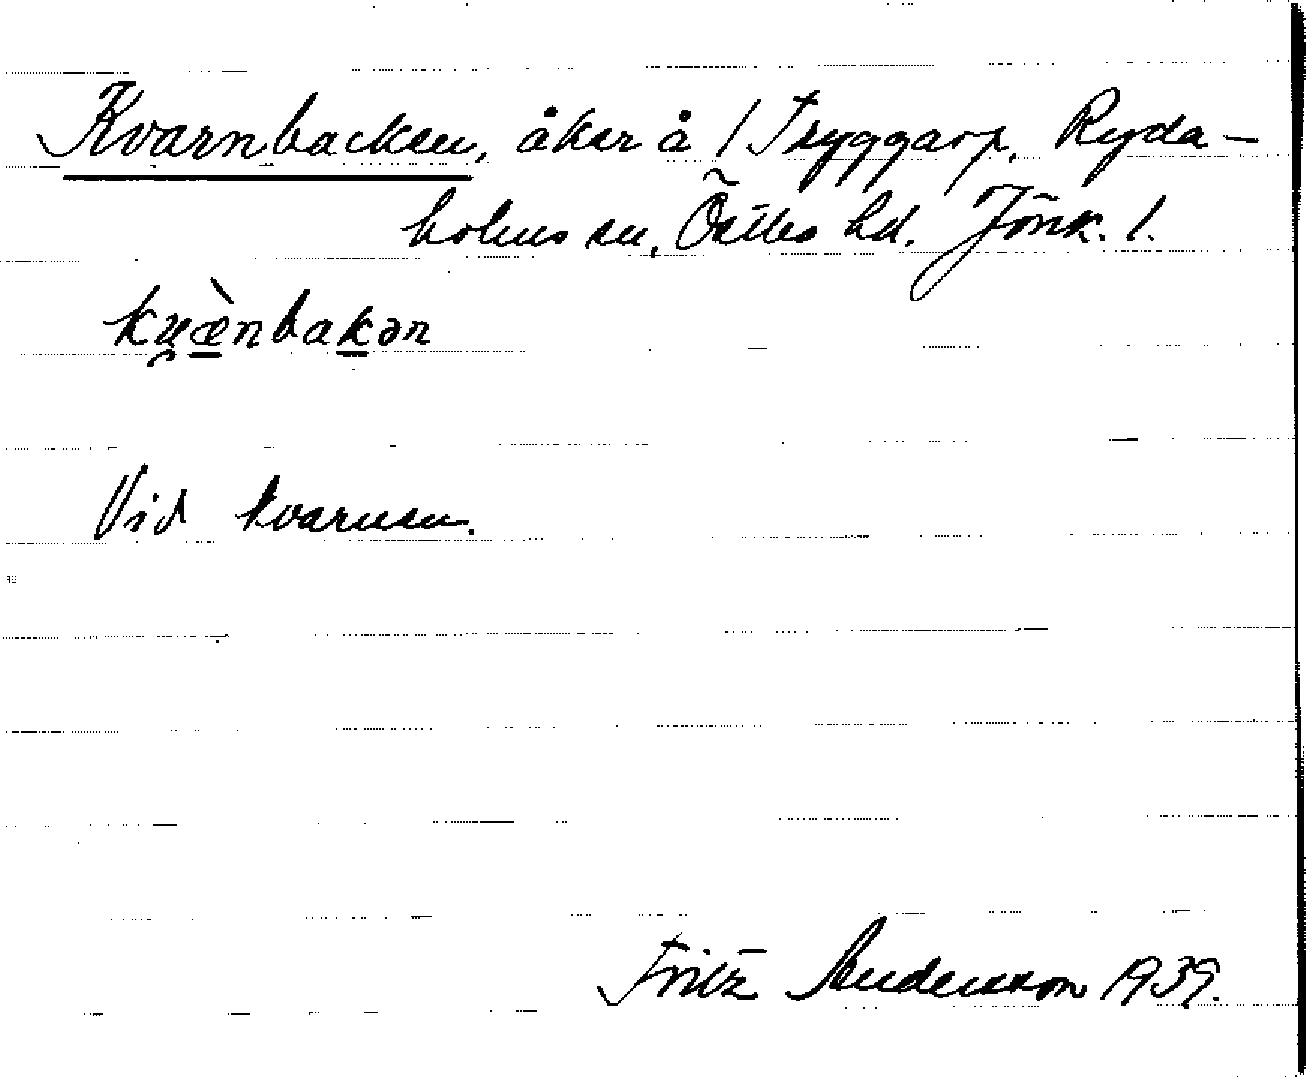 Kvarnbacken, åker å /Tryggarp, Ryda-
holms sn, Östbo hd. Jönk. l.
ku̯æ̀nbakən
Vid kvarnen.
Fritz Andersson 1939.